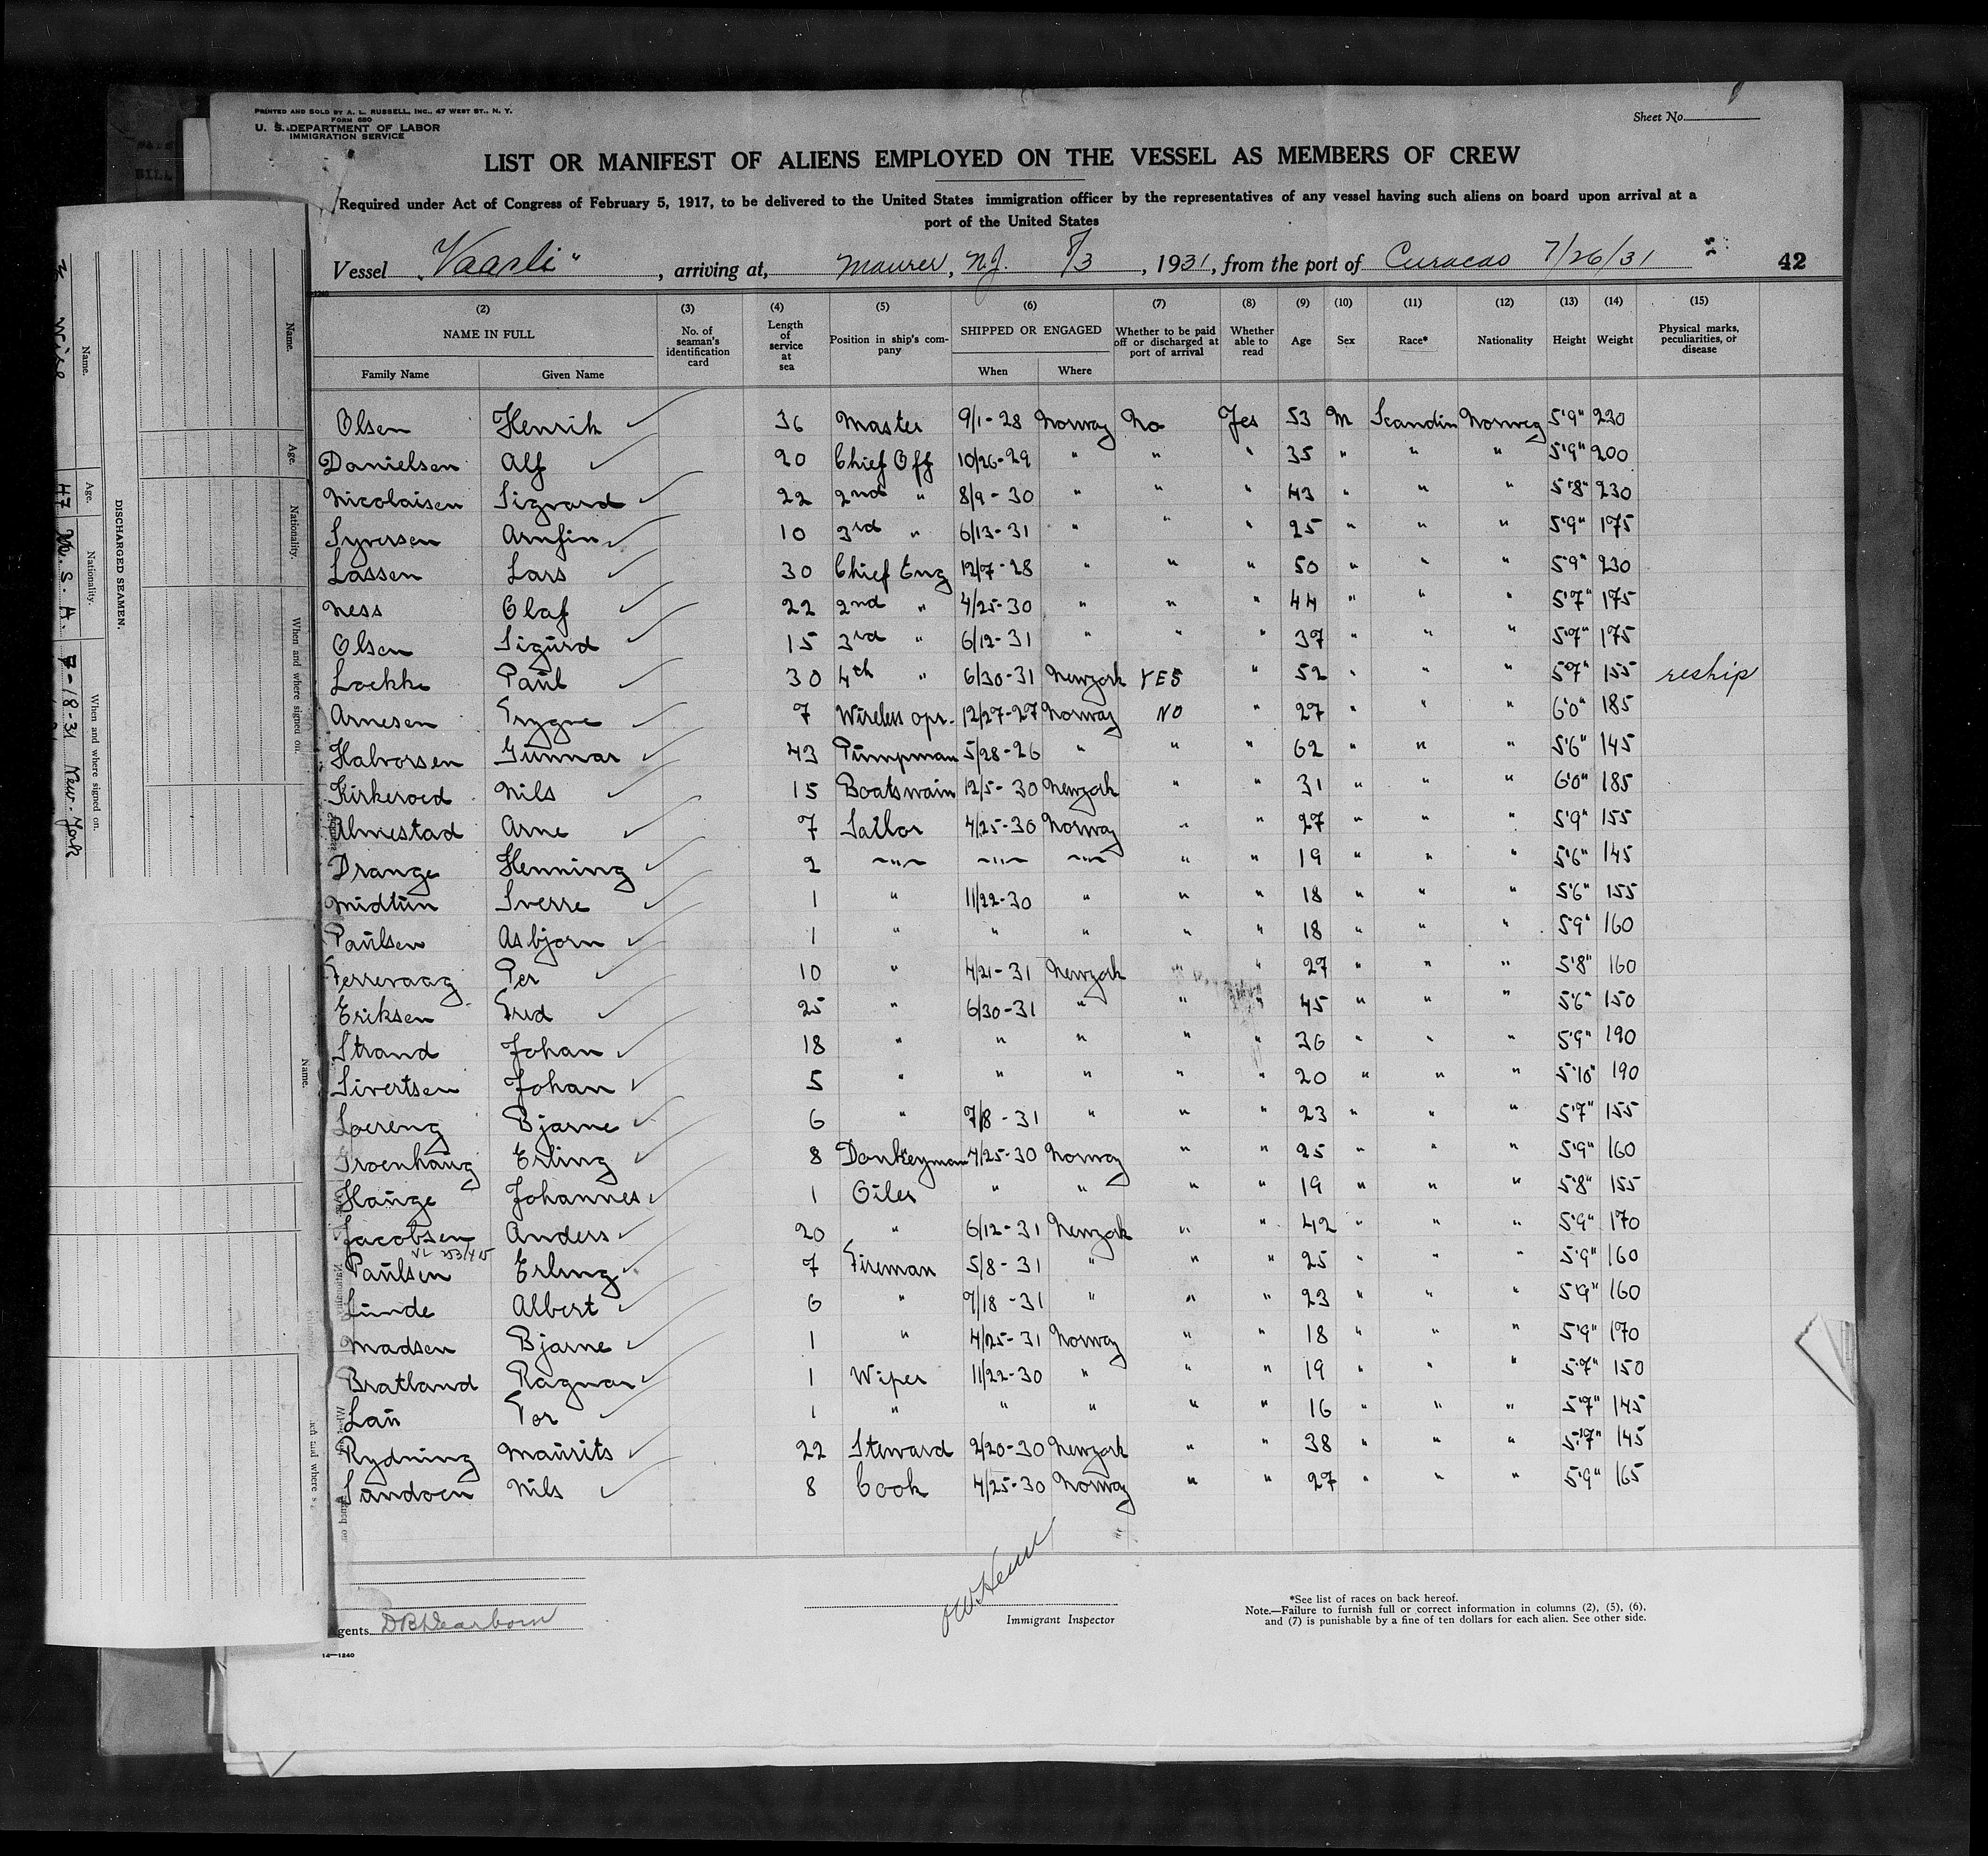 PRINTED AND SOLD BY A. L. RUSSELL, INC., 47 WEST ST., N. Y.
FORM 680
U. S. DEPARTMENT OF LABOR
IMMIGRATION SERVICE
Sheet No.
LIST OR MANIFEST OF ALIENS EMPLOYED ON THE VESSEL AS MEMBERS OF CREW
Required under Act of Congress of February 5, 1917, to be delivered to the United States immigration officer by the representatives of any vessel having such aliens on board upon arrival at a
port of the United States
Vessel "Vaarli", arriving at, Maurer, N.J. 8/3, 1931, from the port of Curacao 7/26/31 42
(2) (3) (4) (5) (6) (7) (8) (9) (10) (11) (12) (13) (14) (15)
NAME IN FULL No. of seaman's identification card Length of service at sea Position in ship's company SHIPPED OR ENGAGED Whether to be paid off or discharged at port of arrival Whether able to read Age Sex Race* Nationality Height Weight Physical marks, peculiarities, or disease
Family Name Given Name When Where
Olsen Henrik 36 Master 9/1-28 Norway No Yes 53 M Scandin Norweg 5'9" 230
Danielsen Alf 20 Chief Off 10/26-29 " " " 35 " " " 5'9" 200
Nicolaisen Sigvard 22 2nd " 8/9-30 " " " 43 " " " 5'8" 230
Syversen Arnfin 10 3rd " 6/13-31 " " " 25 " " " 5'9" 175
Lassen Lars 30 Chief Eng 12/7-28 " " " 50 " " " 5'9" 230
Ness Olaf 22 2nd " 4/25-30 " " " 44 " " " 5'7" 175
Olsen Sigurd 15 3rd " 6/12-31 " " " 37 " " " 5'7" 175
Loekke Paul 30 4th " 6/30-31 Newyork YES " 52 " " " 5'7" 155 reship
Arnesen Trygve 7 Wireless opr. 12/27-27 Norway NO " 27 " " " 6'0" 185
Halvorsen Gunnar 43 Pumpman 5/28-26 " " " 62 " " " 5'6" 145
Kirkeroed Nils 15 Boatswain 12/5-30 Newyork " " 31 " " " 6'0" 185
Almestad Arne 7 Sailor 4/25-30 Norway " " 27 " " " 5'9" 155
Drange Henning 2 -"- -"- -"- " " 19 " " " 5'6" 145
Midtun Sverre 1 " 11/22-30 " " " 18 " " " 5'6" 155
Paulsen Asbjorn 1 " " " " " 18 " " " 5'9" 160
Ferrevaag Per 10 " 4/21-31 Newyork " " 27 " " " 5'8" 160
Eriksen Fred 25 " 6/30-31 " " " 45 " " " 5'6" 150
Strand Johan 18 " " " " " 36 " " " 5'9" 190
Sivertsen Johan 5 " " " " " 20 " " " 5'10" 190
Soereng Bjarne 6 " 7/8-31 " " " 23 " " " 5'7" 155
Troenhaug Erling 8 Donkeyman 4/25-30 Norway " " 25 " " " 5'9" 160
Hauge Johannes 1 Oiler " " " " 19 " " " 5'8" 155
Jacobsen Anders 20 " 6/12-31 Newyork " " 42 " " " 5'9" 170
Paulsen Erling 7 Fireman 5/8-31 " " " 25 " " " 5'9" 160
Lunde Albert 6 " 7/18-31 " " " 23 " " " 5'9" 160
Madsen Bjarne 1 " 4/25-31 Norway " " 18 " " " 5'9" 170
Bratland Ragnar 1 Wiper 11/22-30 " " " 19 " " " 5'7" 150
Lau Tor 1 " " " " " 16 " " " 5'7" 145
Rydning Maurits 22 Steward 2/20-30 Newyork " " 38 " " " 5'7" 145
Sundoen Nils 8 Cook 4/25-30 Norway " " 27 " " " 5'9" 165
Agents DB Dearborn
Immigrant Inspector
*See list of races on back hereof.
Note.—Failure to furnish full or correct information in columns (2), (5), (6),
and (7) is punishable by a fine of ten dollars for each alien. See other side.
14—1240
DISCHARGED SEAMEN.
Name. Age. Nationality. When and where signed on.
47 U. S. A. 7-18-31 New-York
Name. Age. Nationality. When and where signed on.
Name.